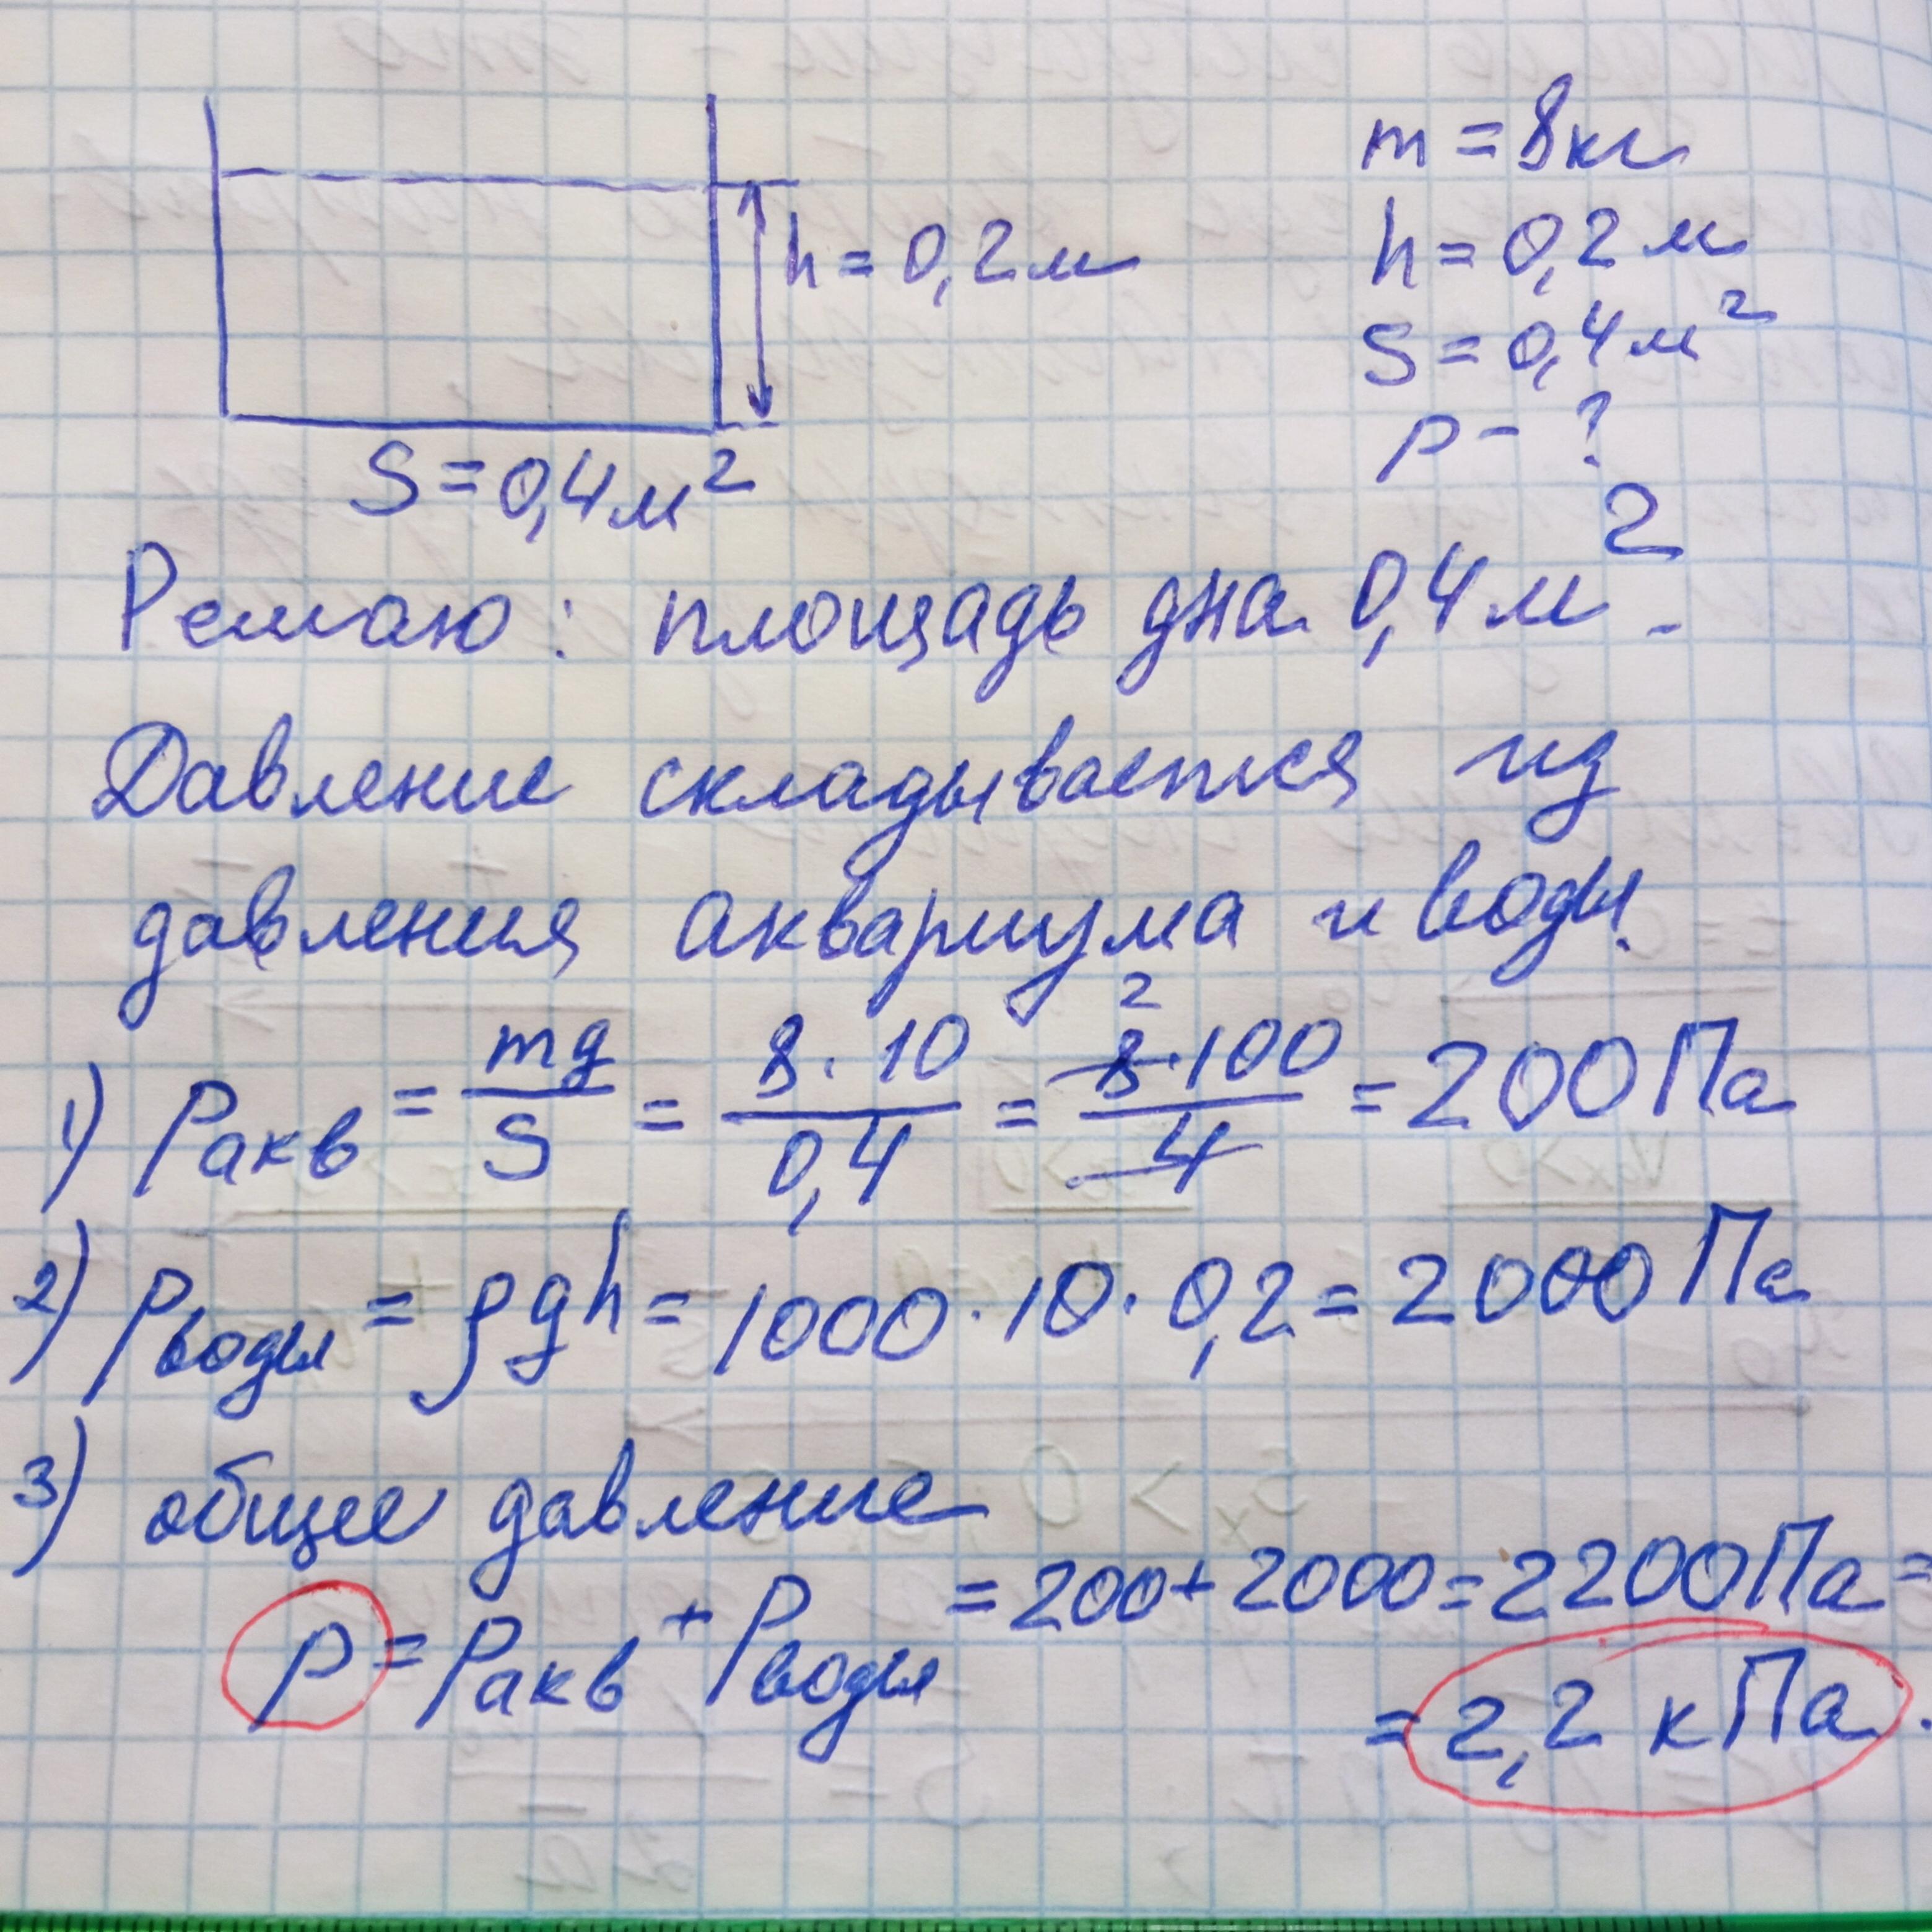 h = 0,2 м
S = 0,4 м²
m = 8 кг
h = 0,2 м
S = 0,4 м²
p - ?
Решаю: площадь дна 0,4 м².
Давление складывается из
давления аквариума и воды.
1) Pакв = mg/S = 8·10/0,4 = 8·100/4 = 200 Па
2
2) Pводы = ρgh = 1000·10·0,2 = 2000 Па
3) общее давление
p = Pакв + Pводы = 200+2000 = 2200 Па =
= 2,2 кПа.